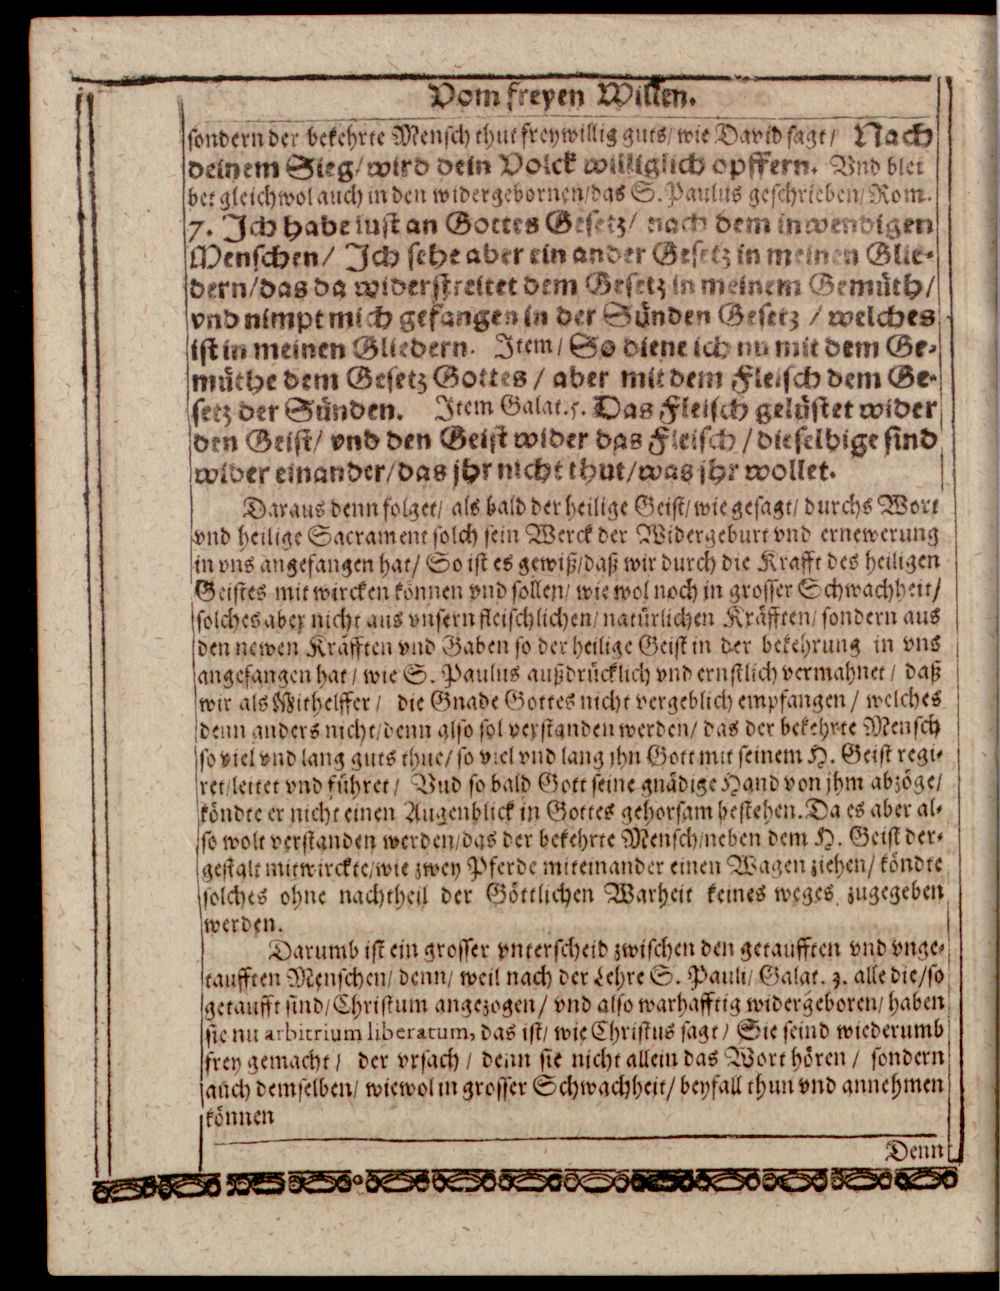 Vom freyen Willen.
sondern der bekehrte Mensch thut freywillig guts/ wie David sagt/ Nach
deinem Sieg/ wird dein Volck williglich opffern. Vnd blei
bet gleichwol auch in den widergebornen/ das S. Paulus geschrieben/ Rom.
7. Ich habe lust an Gottes Gesetz/ nach dem inwendigen
Menschen/ Ich sehe aber ein ander Gesetz in meinen Glie-
dern/ das da widerstreitet dem Gesetz in meinem Gemüth/
vnd nimpt mich gefangen in der Sünden Gesetz / welches
ist in meinen Gliedern. Item/ So diene ich nu mit dem Ge-
müthe dem Gesetz Gottes / aber mit dem Fleisch dem Ge-
setz der Sünden. Item Galat. 5. Das Fleisch gelüstet wider
den Geist/ vnd den Geist wider das Fleisch / dieselbige sind
wider einander/ das jhr nicht thut/ was jhr wollet.
Daraus denn folget/ als bald der heilige Geist/ wie gesagt/ durchs Wort
vnd heilige Sacrament solch sein Werck der Widergeburt vnd ernewerung
in vns angefangen hat/ So ist es gewiß/ daß wir durch die Krafft des heiligen
Geistes mit wircken können vnd sollen/ wie wol noch in grosser Schwachheit/
solches aber nicht aus vnsern fleischlichen/ natürlichen Kräfften/ sondern aus
den newen Kräfften vnd Gaben so der heilige Geist in der bekehrung in vns
angefangen hat/ wie S. Paulus außdrücklich vnd ernstlich vermahnet/ daß
wir als Mithelffer/ die Gnade Gottes nicht vergeblich empfangen / welches
denn anders nicht/ denn also sol verstanden werden/ das der bekehrte Mensch
so viel vnd lang guts thue/ so viel vnd lang jhn Gott mit seinem H. Geist regi-
ret/ leitet vnd führet/ Vnd so bald Gott seine gnädige Hand von jhm abzöge/
köndte er nicht einen Augenblick in Gottes gehorsam bestehen. Da es aber al-
so wolt verstanden werden/ das der bekehrte Mensch/ neben dem H. Geist der-
gestalt mitwirckte/ wie zwey Pferde miteinander einen Wagen ziehen/ köndte
solches ohne nachtheil der Göttlichen Warheit keines weges zugegeben
werden.
Darumb ist ein grosser vnterscheid zwischen den getaufften vnd vnge-
taufften Menschen/ denn/ weil nach der Lehre S. Pauli/ Galat. 3. alle die/ so
getaufft sind/ Christum angezogen/ vnd also warhafftig widergeboren/ haben
sie nu arbitrium liberatum, das ist/ wie Christus sagt/ Sie seind wiederumb
frey gemacht/ der vrsach / denn sie nicht allein das Wort hören / sondern
auch demselben/ wiewol in grosser Schwachheit/ beyfall thun vnd annehmen
können
Denn